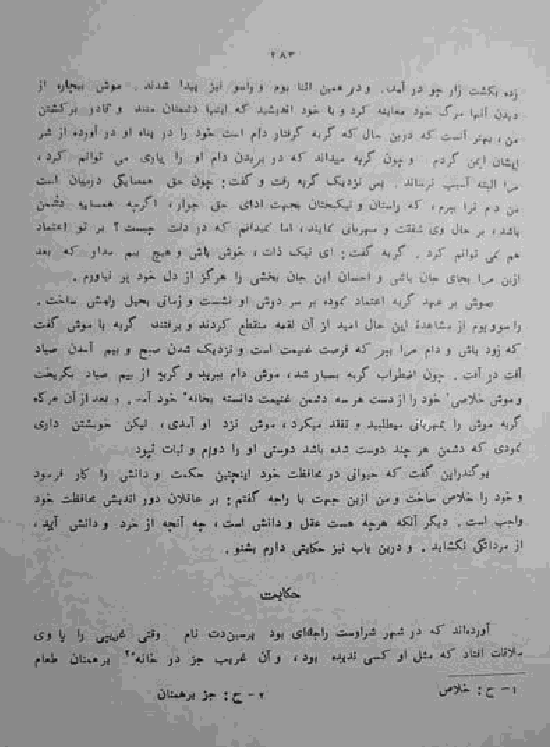 ۲۸۳
زده بکشت زار جو در آمد. و در همین اثنا بوم و راسو نیز پیدا شدند. موش بیچاره از
دیدن آنها مرگ خود معاینه کرد و با خود اندیشید که اینها دشمنان منند و قادر بر کشتن
من، بهتر آنست که درین حال که گربه گرفتار دام است خود را در پناه او در آورده از شر
ایشان ایمن گردم و چون گربه میداند که در بریدن دام او را یاری می توانم کرد،
مرا البته آسیب نرساند. پس نزدیک گربه رفت و گفت: چون حق همسایگی درمیان است
من دم ترا ببرم، که راستان و نیکبختان بجهت ادای حق جوار، اگرچه همسایه دشمن
باشد، بر حال وی شفقت و مهربانی نمایند، اما نمیدانم که در دلت چیست؟ بر تو اعتماد
هم نمی توانم کرد. گربه گفت: ای نیک ذات، خوش باش و هیچ بیم مدار که بعد
ازین مرا بجای جان باشی و احسان این جان بخشی را هرگز از دل خود بر نیاورم.
موش بر عهد گربه اعتماد نموده بر سر دوش او نشست و زمانی بحیل رامش ساخت.
راسو و بوم از مشاهدهٔ این حال امید از آن لقمه منقطع کردند و برفتند. گربه با موش گفت
که زود باش و دام مرا ببر که فرصت غنیمت است و نزدیک شدن صبح و بیم آمدن صیاد
آفت در آفت. چون اضطراب گربه بسیار شد، موش دام ببرید و گربه از بیم صیاد بگریخت
و موش خلاصی۱ خود را از دست هر سه دشمن غنیمت دانسته بخانهٔ خود آمد. و بعد از آن هرگاه
گربه موش را بمهربانی میطلبید و تفقد میکرد، موش نزد او آمدی، لیکن خویشتن داری
نمودی که دشمن هر چند دوست شده باشد دوستی او را دوام و ثبات نبود
برگندراین گفت که حیوانی در محافظت خود اینچنین حکمت و دانش را کار فرمود
و خود را خلاص ساخت و من ازین جهت با راجه گفتم: بر عاقلان دور اندیش محافظت خود
واجب است. دیگر آنکه هرچه هست عقل و دانش است، چه آنچه از خرد و دانش آید،
از مردانگی نگشاید. و درین باب نیز حکایتی دارم بشنو.
حکایت
آورده‌اند که در شهر شراوست راجه‌ای بود پرسین‌دت نام وقتی غریبی را با وی
ملاقات افتاد که مثل او کسی ندیده بود، و آن غریب جز در خانهٔ۲ برهمنان طعام
۱- ج: خلاص
۲- ج: جز برهمنان